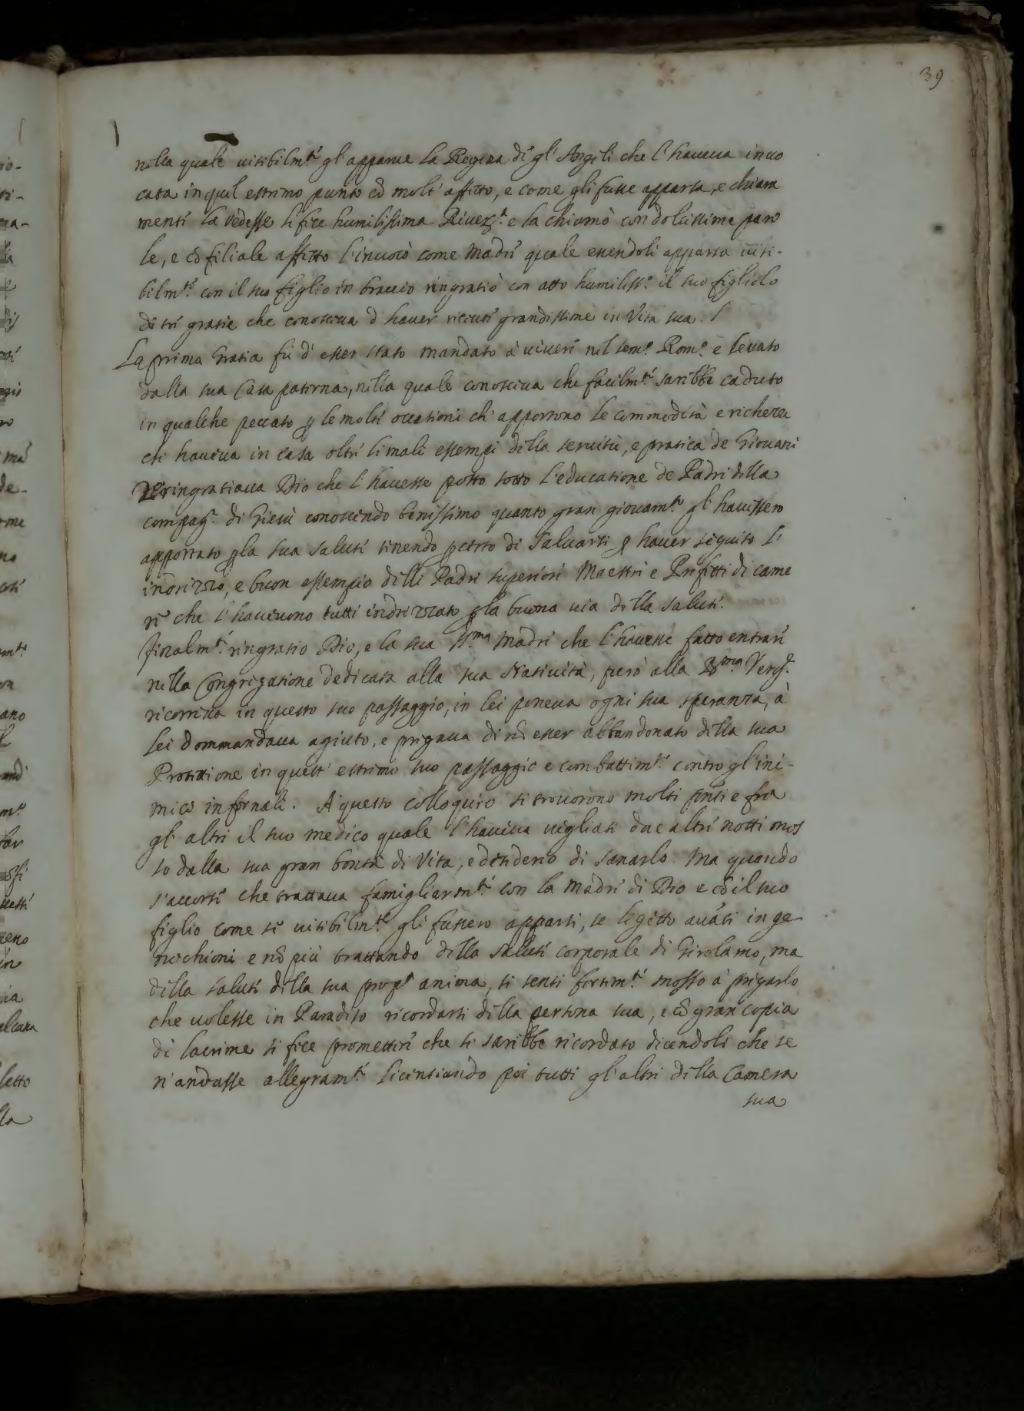 39
nella quale uisibilmte gl'apparue la Regina de gl'Angeli che l'haueua inuo
cata in quel estremo punto cō molt'affetto, e come gli fusse apparsa, e chiara
mente la vedesse li fece humilissima Riuerza e la chiamò con dolcissime paro
le, e cō filiale affetto l'inuocò come Madre quale essendoli apparsa uisi-
bilmte con il suo figlio in braccio ringratiò con atto humiliss.o il suo figliolo
di tre gratie che conosceua d'hauer riceute grandissime in Vita sua.
La prima Gratia fù d'esser stato mandato à uiuere nel Sem.o Rom.o e leuato
dalla sua Casa paterna, nella quale conosceua che facilmte sarebbe caduto
in qualche peccato p le molte occasioni ch'apportono le commodità e richezze
che haueua in casa oltre li mali essempi della seruitù, e pratica de Giouani
2.o ringratiaua Dio che l'hauesse posto sotto l'educatione de Padri della
compag.a di Giesù conoscendo benissimo quanto gran giouamto gl'hauessero
apportato p la sua salute tenendo p certo di saluarsi p hauer seguito l'
indrizzo, e buon essempio delli Padri superiori Maestri e Prefetti di came
re che l'haueuono tutti indrizzato p la buona uia della salute.
Finalmte ringratio Dio, e la sua S.ma Madre che l'hauesse fatto entrare
nella Congregatione dedicata alla sua Natiuità, però alla B.ma Verg.e
ricorreua in questo suo passaggio, in lei poneua ogni sua speranza, à
lei dommandaua agiuto, e pregaua di nō esser abbandonato della sua
Protetione in quest'estremo suo passaggio e combattimto contro gl'ini-
mici infernali. A questo colloquio si trouorono molti pnti e fra
gl'altri il suo medico quale l'haueua uegliato due altre notti mos
so dalla sua gran bontà di Vita, e desiderio di sanarlo. Ma quando
s'accorse che trattaua famigliarmte con la Madre di Dio e cō il suo
figlio come se uisibilmte gli fussero apparsi, se li gettò auāti in ge
nochioni e nō più trattando della salute corporale di Girolamo, ma
della salute della sua prop.a anima, si sentì fortemte mosso à pregarlo
che uolesse in Paradiso ricordarsi della persona sua, e cō gran copia
di lacrime si fece promettere che si sarebbe ricordato dicendoli che se
n'andasse allegramte licentiando poi tutti gl'altri della Camera
sua